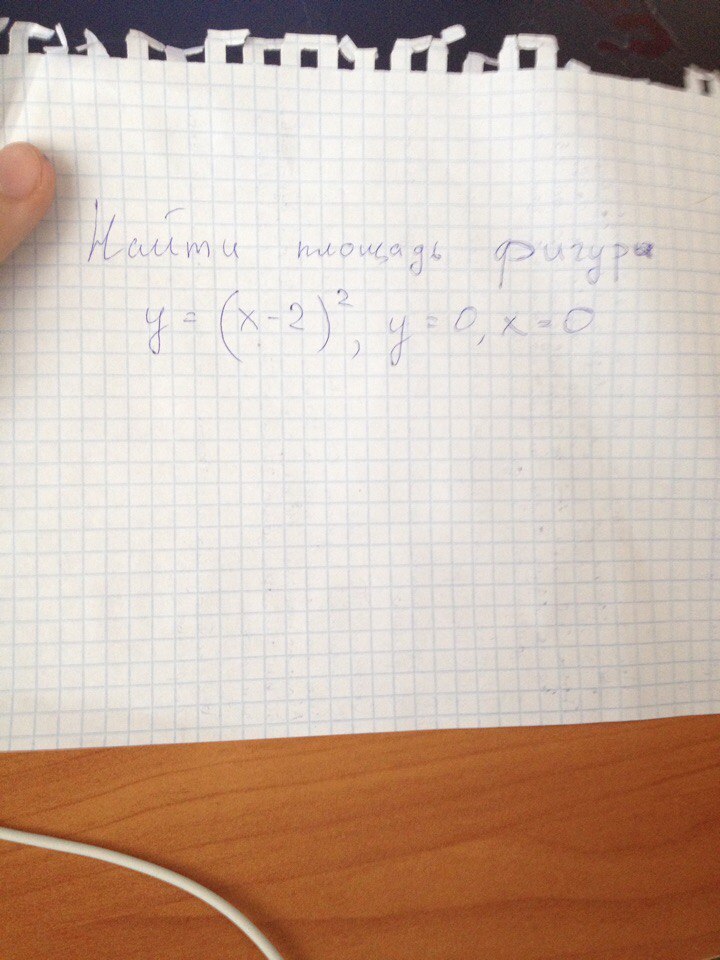 Найти площадь фигуры
y = (x-2)², y = 0, x = 0